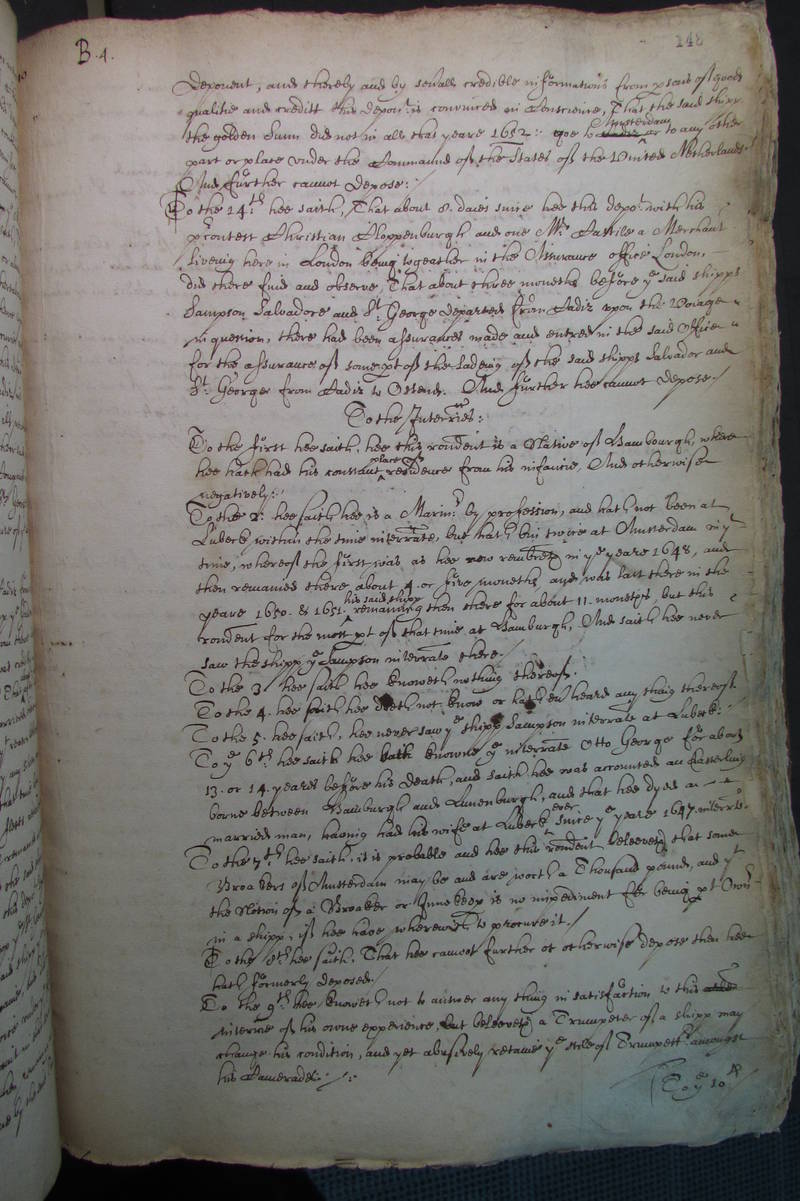 B.4.
148
deponent, and thereby and by severall credible informations from persons of good
qualitie and creditt this deponent is convinced in Conscience, That the said shipp
the golden Sunn did not in all that yeare 1652: goe to Amsterdam or to any other
part or place under the Command of the States of the United Netherlands.
And further cannot depose:
To the 14.th hee saith, That about 8. daies since hee this depot. with his
precontest Christian Cloppenburgh and one Mr. Castile a Merchant
living here in London being together in the Assurance office London,
did there find and observe, That about three moneths before ye said shipps
Sampson Salvadore and St. George departed from Cadiz upon the Voiage
in question, there had been assurances made and entred in the said Office
for the assurance of some pt of the ladeing of the said shipps Salvador and
St. George from Cadiz to Ostend. And further hee cannot depose./
To the Interries:
To the first hee saith, hee this rondent is a Native of Hambourgh, where
hee hath had his constant place of residence from his infancie, And otherwise
negatively:
To the 2: hee saith hee is a Marinr. by profession, and hath not been at
Lubeck within the time interrate, but hath bin twice at Amsterdam in yt
time, whereof the first was as hee now rembreth in ye yeare 1648, and
then remained there about 4. or five moneths and was last there in the
yeare 1650. & 1651. his said shipp remaining then there for about 11. moneths, but this
rondent for the most pt of that time at Hamburgh, And saith hee never
saw the shipp ye Sampson interrate there.
To the 3. hee saith hee knoweth nothing thereof.
To the 4. hee saith hee doeth not know or hath ever heard any thing thereof.
To the 5. hee saith, hee never saw ye shipp Sampson interrate at Lubeck:
To ye 6th hee saith hee hath knowne ye interrate Otto George for about
13. or 14. yeares before his death, and saith hee was accounted an Easterling
borne between Hamburgh and Lunenburgh, and that hee dyed a
married man, having had his wife at Lubeck ever since ye yeare 1647. interrte.
To the 7th. hee saith, it is probable and hee this rondent beleeveth that some
Broakers of Amsterdam may be and are worth a Thousand pounds, and yt
the Notion of a Broaker or Innekeep is no impediment for being pt Owner
in a shipp, if hee have wherewith to procure it./
To the 8th. hee saith, That hee cannot further or otherwise depose then hee
hath formerly deposed./
To the 9th. hee knoweth not to answer any thing in satisfaction to this
interrie of his owne experience, but beleeveth a Trumpeter of a shipp may
change his condition, and yet abusively retaine ye stile of Trumpettr. amongst
his Camerades:
To ye 10th